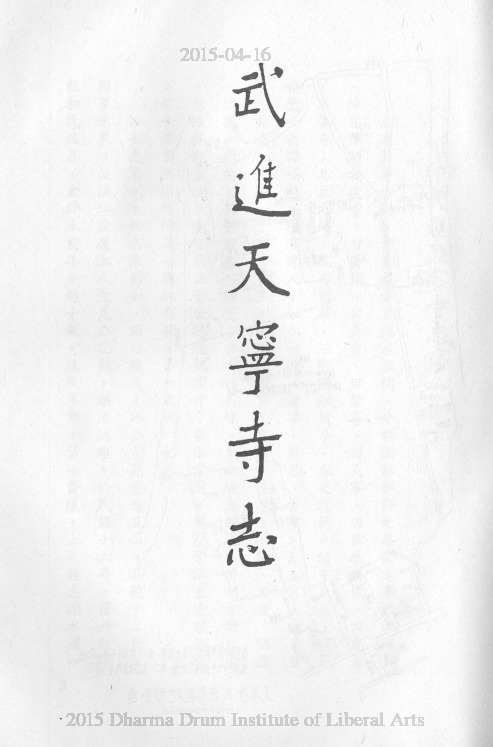 2015-04-16
武進天寧寺志
· 2015 Dharma Drum Institute of Liberal Arts